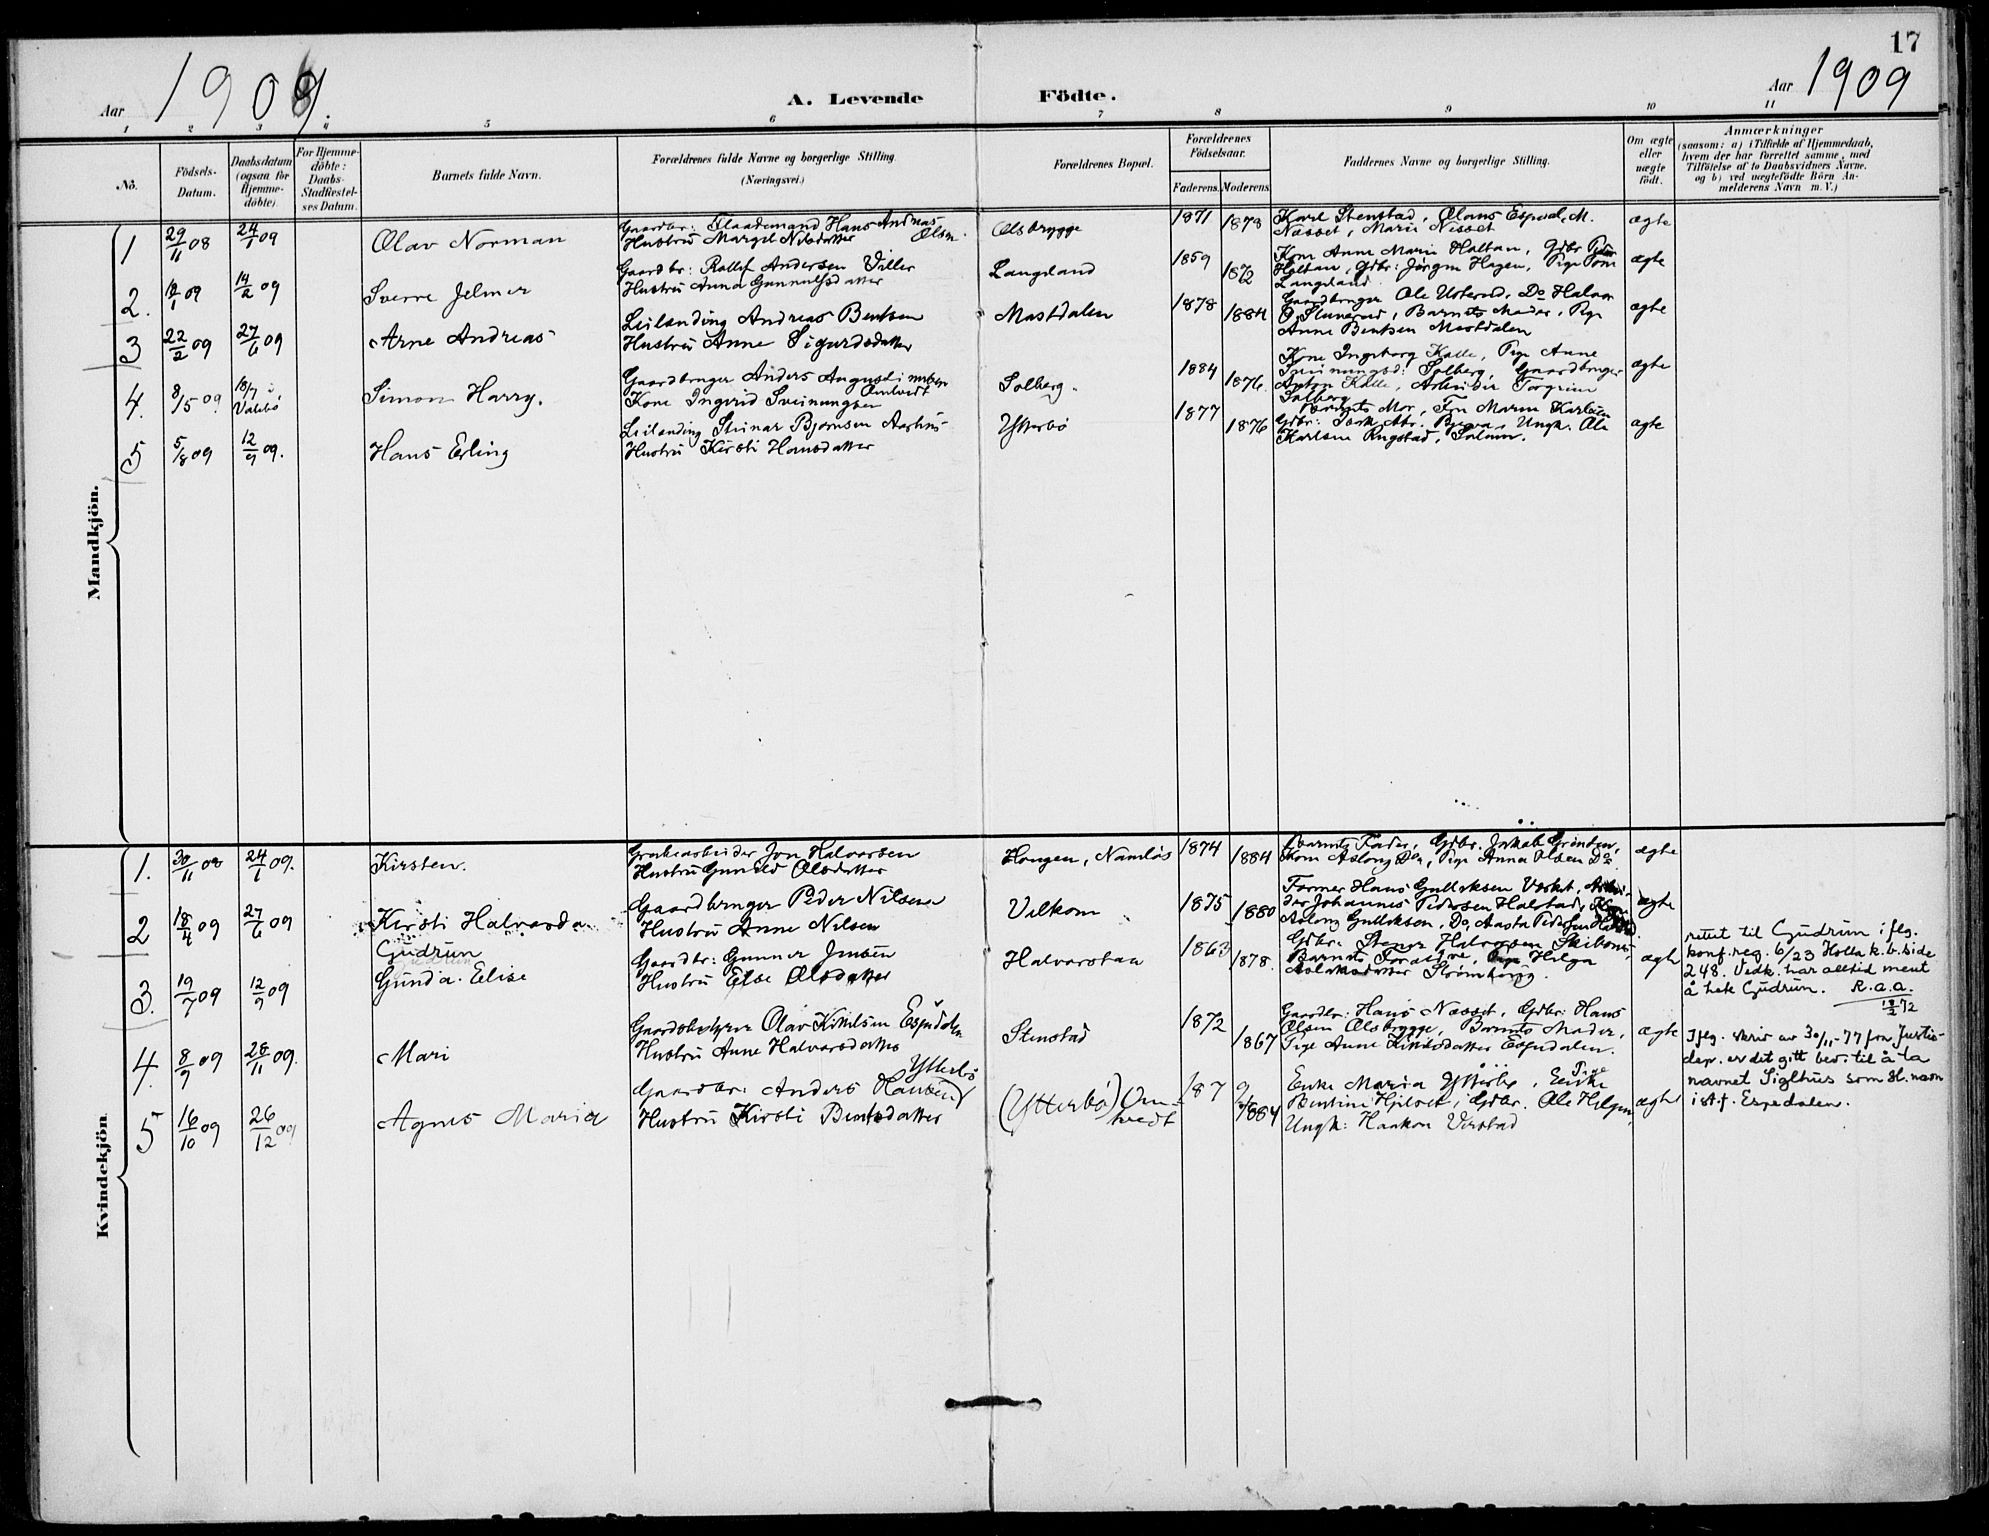 17
Aar 1909.
A. Levende Födte.
Aar 1909
1 2 3 4 5 6 7 8 9 10 11
Nô.
Födsels-Datum.
Daabsdatum (ogsaa for Hjemme-döbte).
For Hjemme-döbte: Daabs-Stadfæstel-ses Datum.
Barnets fulde Navn.
Forældrenes fulde Navne og borgerlige Stilling. (Næringsvei.)
Forældrenes Bopæl.
Forældrenes Födselsaar.
Faderens. Moderens.
Faddernes Navne og borgerlige Stilling.
Om ægte eller uægte födt.
Anmærkninger
(saasom: a) i Tilfælde af Hjemmedaab, hvem der har forrettet samme, med Tilföielse af to Daabsvidners Navne, og b) ved uægtefödte Börn An-melderens Navn m. V.)
Mandkjön.
1 29/11 08 24/1 09 Olav Norman
Gaardbr: Hans Andreas Olsen
Hustru Margit Nilsdatter
Olsbrygge 1871 1878
Karl Stenstad, Olaus Espedal, M. Næsset, Marie Næsset
ægte
2. 09 14/2 09 Sverre Jelmer
Gaardbr: Rollef Andersen Viller
Hustru Anna Gunnulfsdatter
Langeland 1859 1872
Kone Anne Marie Haltan, Gdbr Haltan, Gdbr: Jørgen Hagen, Pige Langeland
ægte
3 22/2 09 27/6 09 Arne Andreas
Leilending Andreas Bentsen
Hustru Anne Sigurdsdatter
Mastdalen 1878 1884
Gaardbruger Ole Usterud, Do Halvor Barnets Moder, Pige Anne Bentsen Mastdalen
ægte
4. 8/5 09 18/7 Valebø Simon Harry.
Gaardbruger Anders August
Kone Ingerid Sveinungsen
Solberg. 1884 1876
Kone Ingeborg Kalle, Pige Anne Sveinungsd: Solberg, Gaardbruger Anton Kalle, Arbeider Torgrim Solberg
ægte
5 5/8 09 12/9 09. Hans Erling
Leilending Steinar Bjørnsen
Hustru Kirsti Hansdatter
Ytterbö 1877 1876
Barnets Mor, Fru Maren Karlsen Gdbr: Ungk. Ole Karlsen Ringstad, Solum.
ægte
Kvindekjön
1. 30/11 08 24/1 09. Kirsten.
Grubearbeider Jon Halvorsen
Hustru Gunild Olsdatter
Haugen, Namløs 1874 1884
Barnets Fader, Gdbr. Jakob Kone Aslaug Do, Pige Anna Olsen Do
ægte
2 18/4 09 27/6 09 Kirsti Halvarda
Gaardbruger Peder Nilsen
Hustru Anne Nilsen
Vilkom 1875 1880
Farmer Hans Gulleksen Johannes Pedersen Halstad, Aslaug Gulleksen, Do Aasta Pedersen
ægte
3. 19/7 09 12/9 09 Gudrun
Gunda Elise
Gaardbr: Gunnar Jensen
Hustru Else Olsdatter
Halvarstaa 1863 1878.
Gdbr: Stener Halvorsen Barnets Forældre, Pige Helga Strømberg
ægte
rettet til Gudrun iflg.
konf. reg. 6/23 Holla k.b. side
248. Vedk. har alltid ment
å hete Gudrun. R.a.a.
18/2 72
4. 8/9 09 28/11 09. Mari
Gaardsbestyrer Olav Kittilsen Espedalen
Hustru Anne Halvorsdatter
Stenstad 1872 1867
Gaardbr: Hans Næsset, Gdbr: Hans Olsen Olsbrygge, Barnets Moder, Pige Anne Kittilsdatter Espedalen.
ægte
Iflg. skriv av 30/11-77 fra Justis-
dep. er det gitt bev. til å ta
navnet Siglhus som sl.navn
ist.f. Espedalen.
5 16/10 09 26/12 09 Agnes Maria
Gaardbr: Anders Hansen Ytterbö
Hustru Kirsti Bentsdatter
(Ytterbö) Omtvedt 1879 1884
Enke Maria Ytterbö, Pige Bentine Gdbr. Ole Ungk: Haakon Virstad
ægte